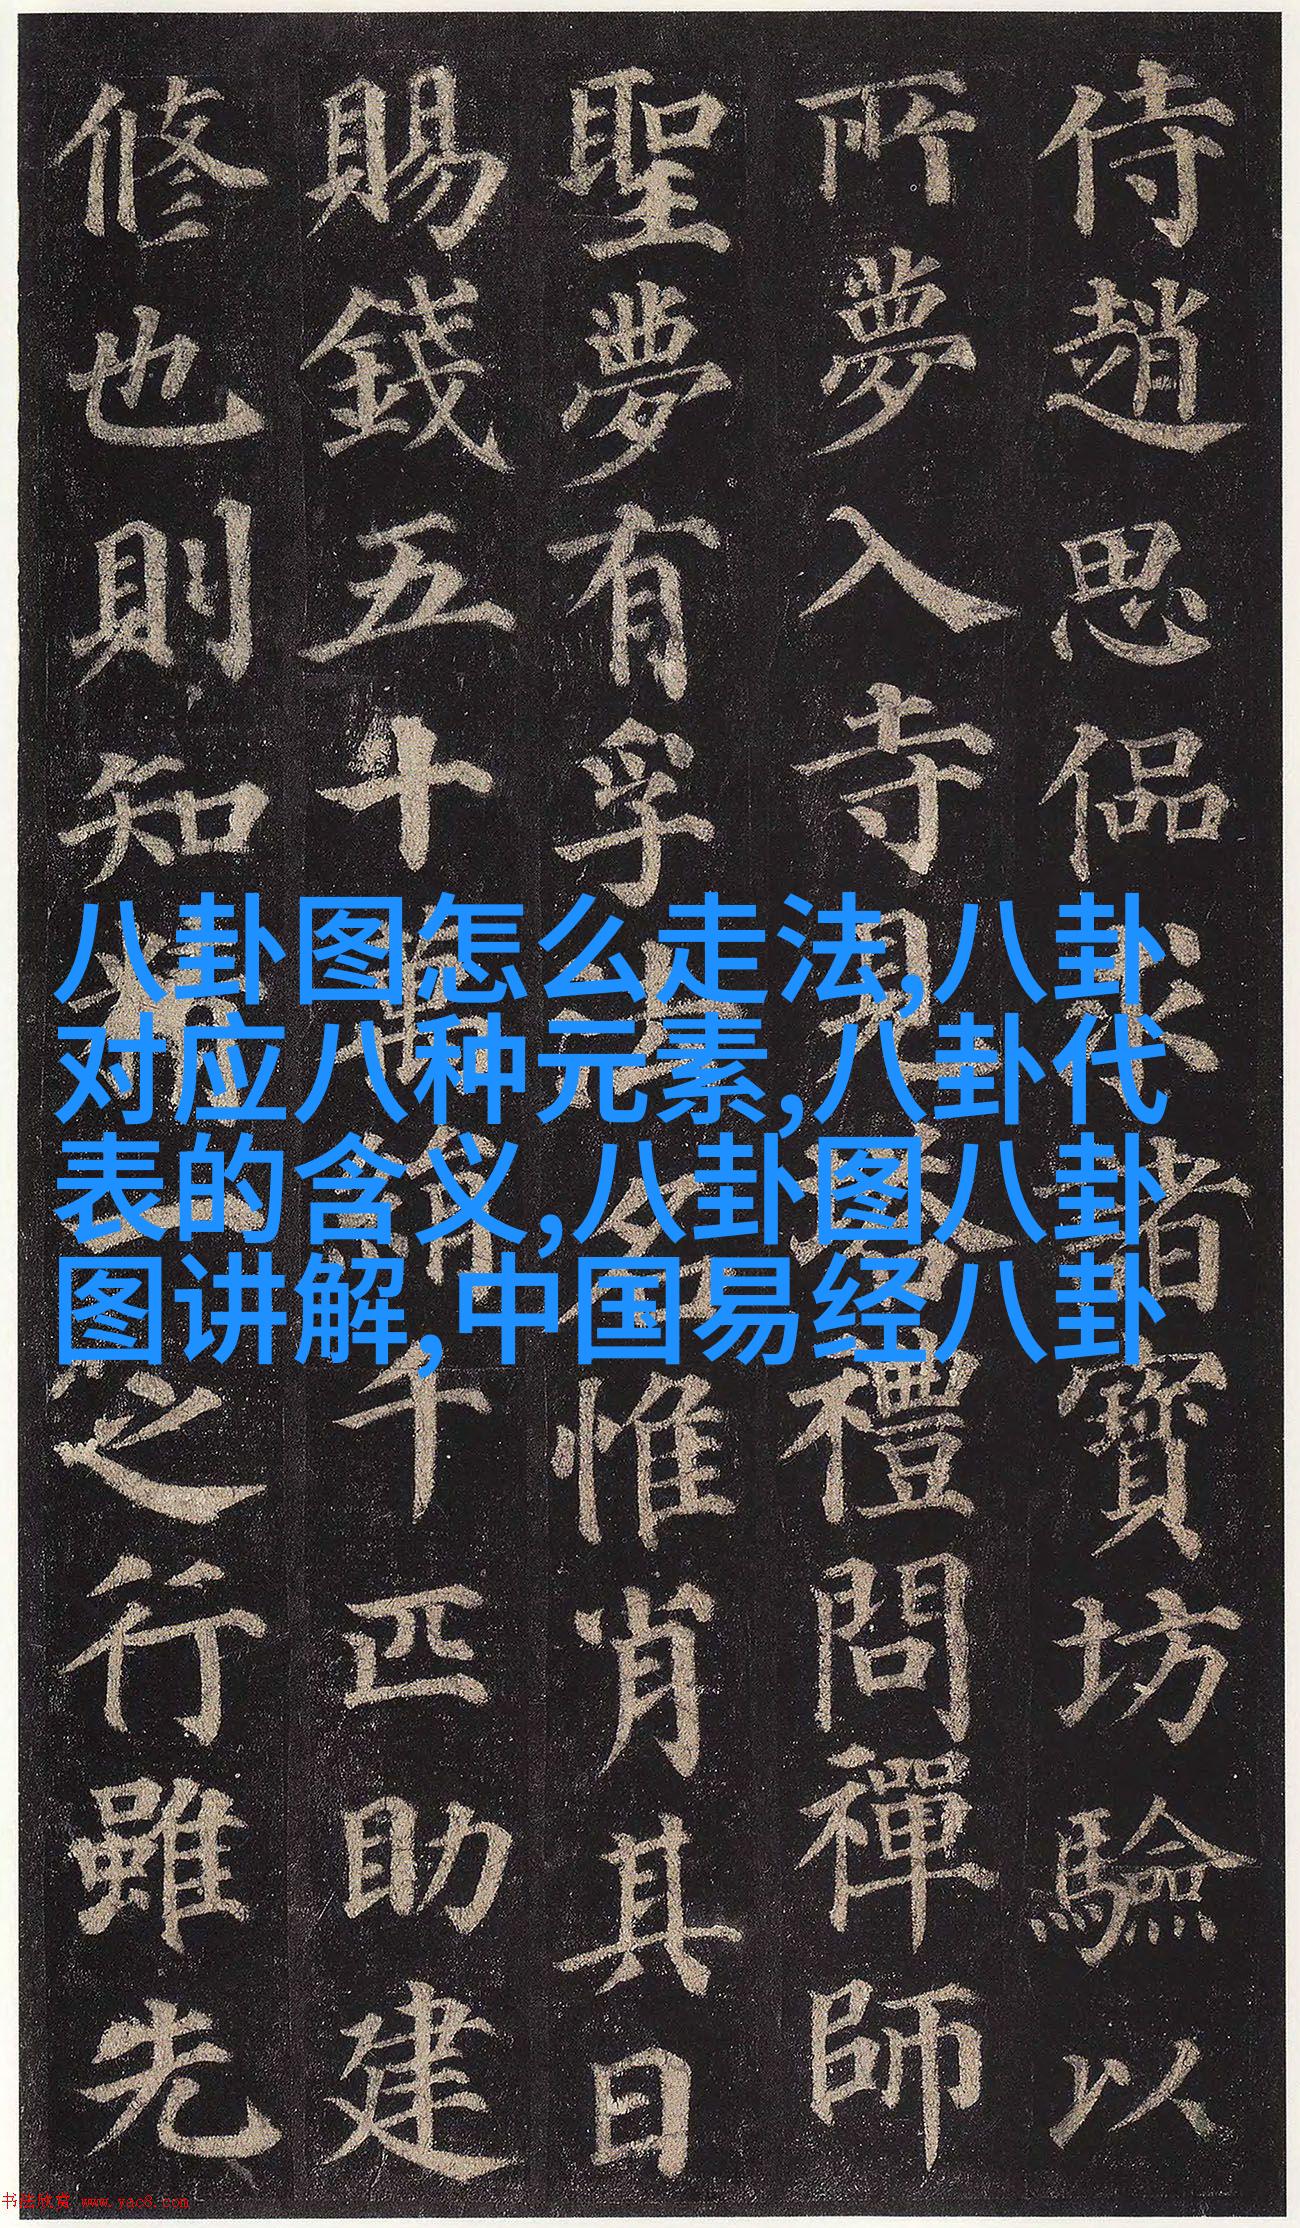 侍趙思偘求諸寶坊驗以
所夢入寺見塔禮問禪師
聖夢有孚法名惟肖其日
賜錢五十萬絹千匹助建
修也則知精一之行雖先
八卦图怎么走法,八卦
对应八种元素,八卦代
表的含义,八卦图八卦
图讲解,中国易经八卦
书法欣赏 www.yac8.com